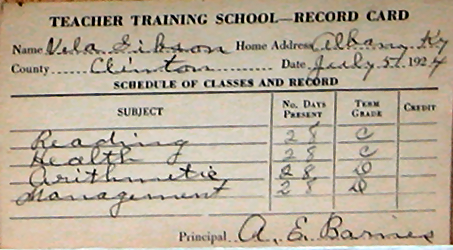 TEACHER TRAINING SCHOOL—RECORD CARD
Name Vela Gibson Home Address Albany, Ky
County Clinton Date July 5, 1924
SCHEDULE OF CLASSES AND RECORD
SUBJECT No. DAYS PRESENT TERM GRADE CREDIT
Reading 28 C
Health 28 C
Arithmetic 28 D
Management 28 D
Principal A. E. Barnes